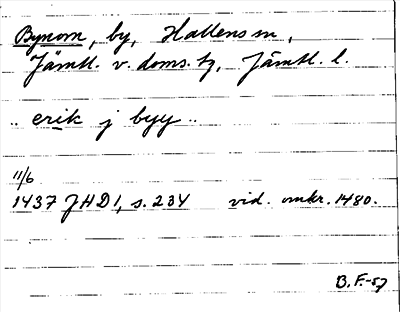 Bynom, by, Hallens sn,
Jämtl. v. doms. tg, Jämtl. l.
.. erik j byy ..
11/6
1437 JHD 1, s. 234 vid. omkr. 1480.
B. F. -57